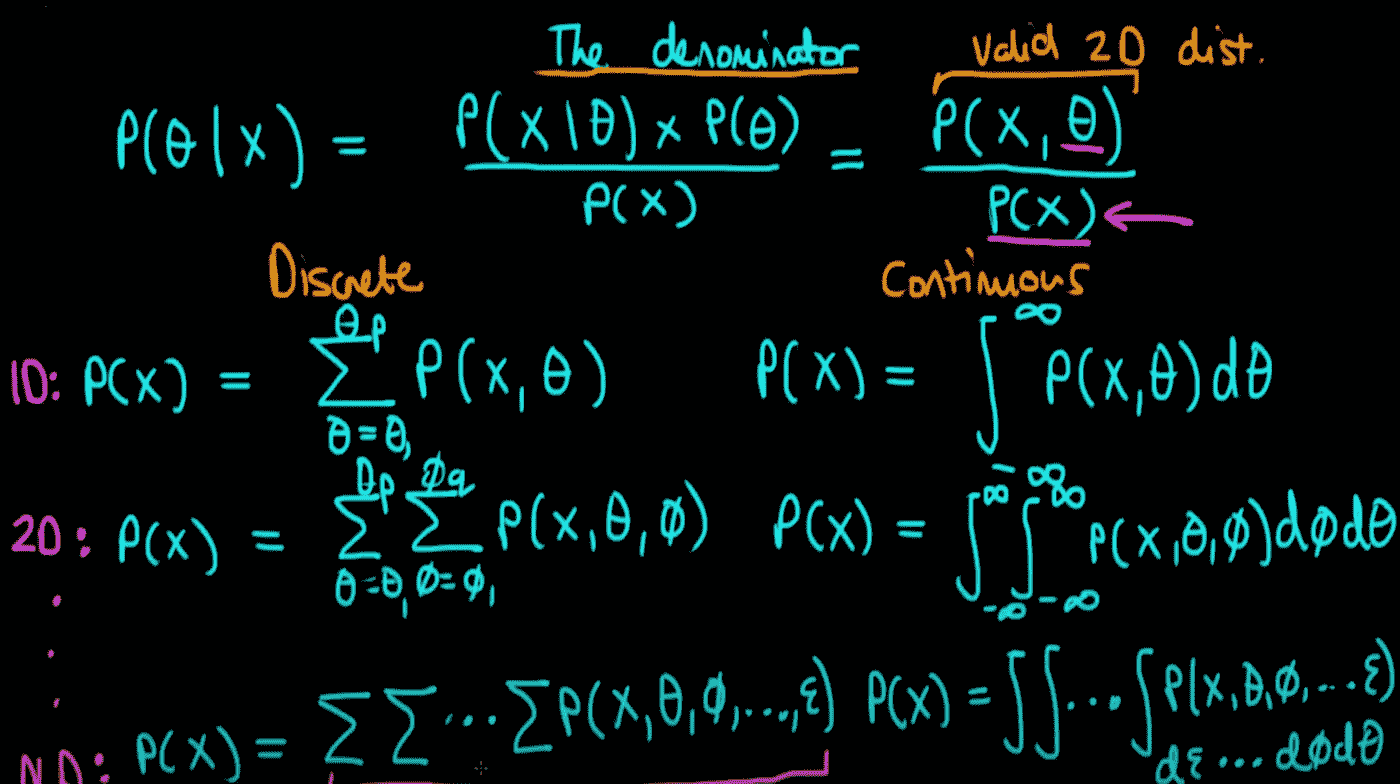 The denominator Valid 2D dist.
P(θ|X) = P(X|θ) × P(θ) / P(X) = P(X, θ) / P(X) ←
Discrete Continuous
1D: P(X) = ∑_{θ=θ₁}^{θₚ} P(X, θ) P(X) = ∫_{-∞}^{∞} P(X, θ) dθ
2D: P(X) = ∑_{θ=θ₁}^{θₚ} ∑_{ϕ=ϕ₁}^{ϕq} P(X, θ, ϕ) P(X) = ∫_{-∞}^{∞} ∫_{-∞}^{∞} P(X, θ, ϕ) dϕ dθ
ND: P(X) = ∑ ∑ ... ∑ P(X, θ, ϕ, ..., ε) P(X) = ∫∫ ... ∫ P(X, θ, ϕ, ... ε)
dε ... dϕ dθ